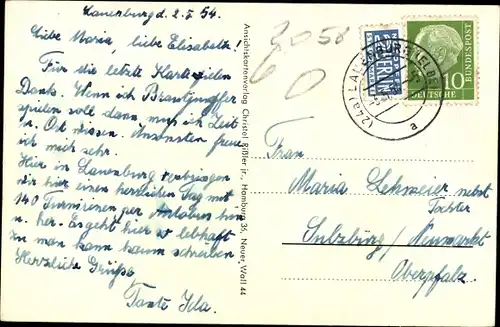 Lauenburg d. 2.5.54.
Liebe Maria, liebe Elisabeth!
Für die letzte Karte vielen
Dank. Wenn ich Brautjungfer
spielen soll dann muß ich Zeit
u. Ort wissen. Ansonsten freue
ich mich sehr.
Hier in Lauenburg verbringen
wir hier einen herrlichen Tag mit
140 Turnerinnen per Autobus
u. her. Es geht hier so lebhaft
zu man kann kaum schreiben
Herzliche Grüße
Tante Ida.
Ansichtskartenverlag Christel Rißler jr., Hamburg 36, Neuer Wall 44
30 58
60
NOTOPFER
2 BERLIN
STEUERMARKE
10
DEUTSCHE
BUNDESPOST
(24a) LAUENBURG (ELBE)
a
Frau
Maria Lehmeier nebst
Tochter
Sulzbürg / Neumarkt
Oberpfalz.